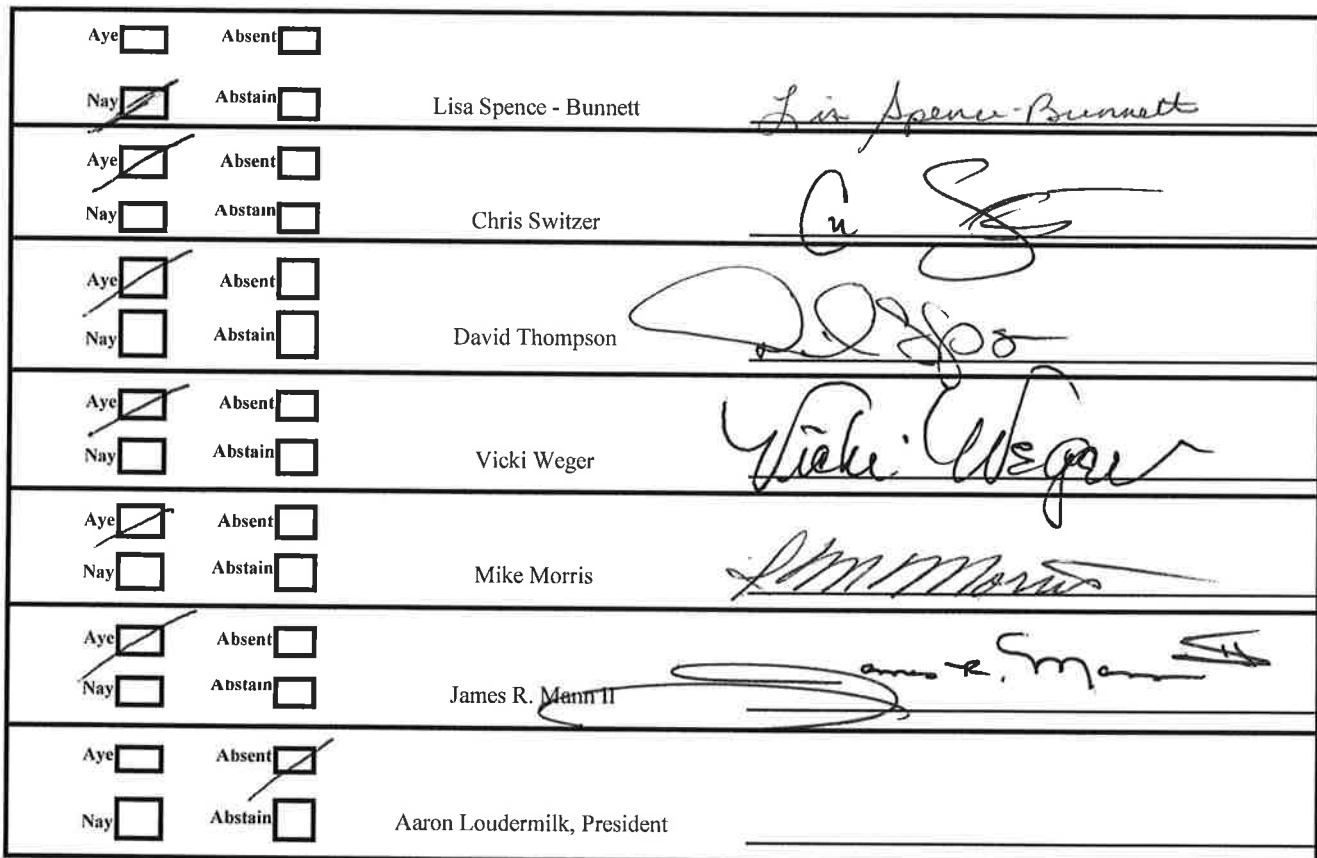 Aye Absent
Nay Abstain Lisa Spence - Bunnett Lisa Spence-Bunnett
Aye Absent
Nay Abstain Chris Switzer
Aye Absent
Nay Abstain David Thompson
Aye Absent
Nay Abstain Vicki Weger Vicki Weger
Aye Absent
Nay Abstain Mike Morris Morris
Aye Absent
James R. Mann II
Nay Abstain James R. Mann II
Aye Absent
Nay Abstain Aaron Loudermilk, President